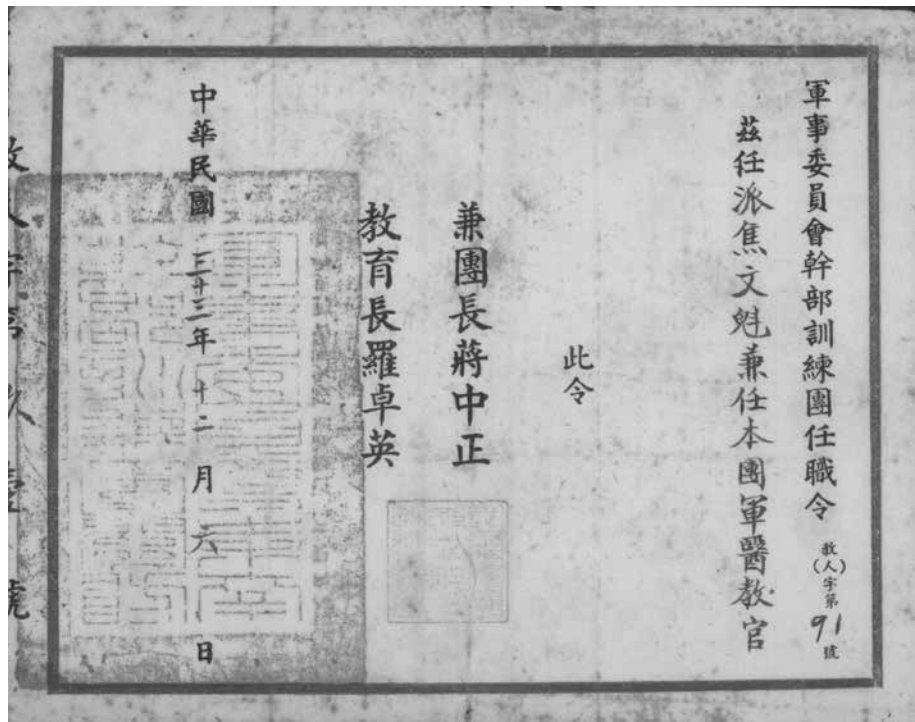 軍事委員會幹部訓練團任職令
教(人)字第91號
茲任派焦文魁兼任本團軍醫教官
此令
兼團長蔣中正
教育長羅卓英
中華民國三十三年十二月六日